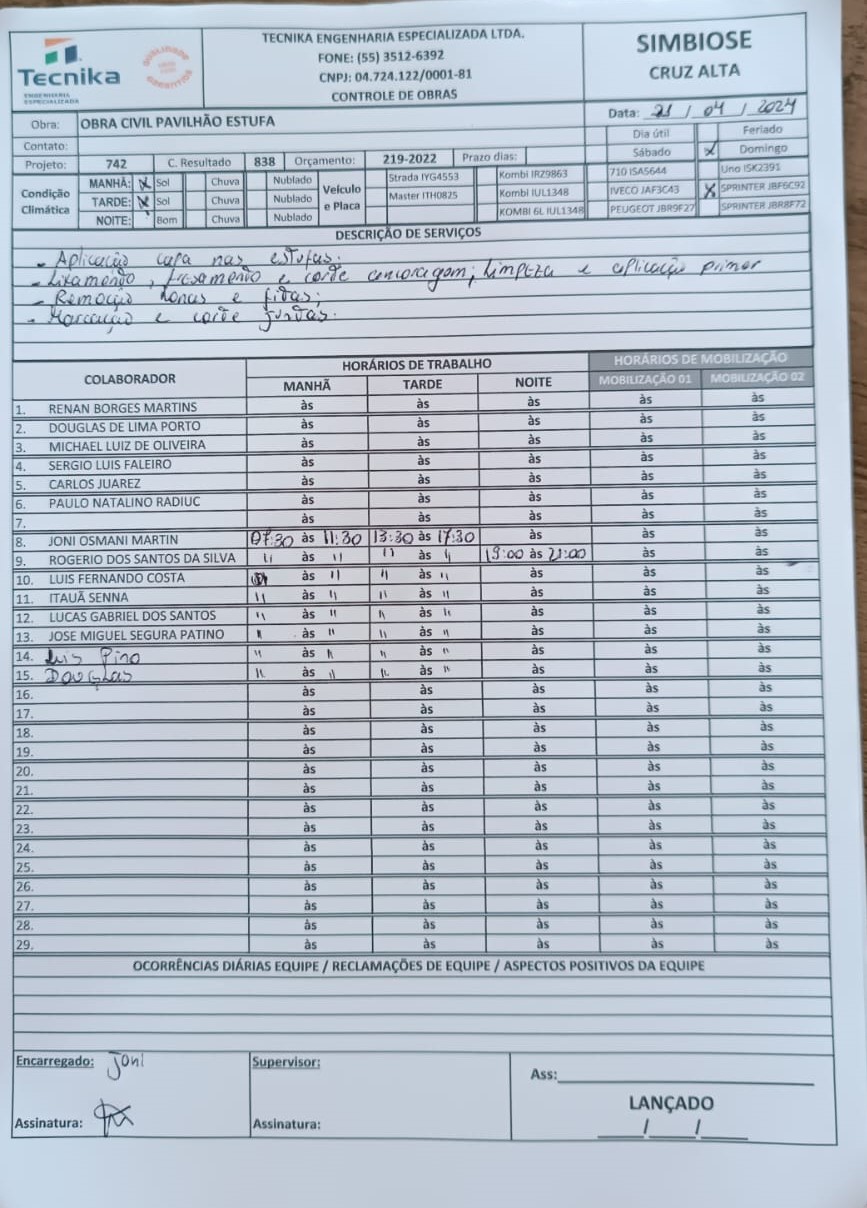 Tecnika
ENGENHARIA
ESPECIALIZADA
TECNIKA ENGENHARIA ESPECIALIZADA LTDA.
FONE: (55) 3512-6392
CNPJ: 04.724.122/0001-81
CONTROLE DE OBRAS
SIMBIOSE
CRUZ ALTA
Obra: OBRA CIVIL PAVILHÃO ESTUFA
Data: 21 / 04 / 2024
Contato:
Dia útil Feriado
Sábado X Domingo
Projeto: 742 C. Resultado 838 Orçamento: 219-2022 Prazo dias:
Condição Climática
MANHÃ: X Sol Chuva Nublado
TARDE: X Sol Chuva Nublado
NOITE: Bom Chuva Nublado
Veículo e Placa
Strada IYG4553 Kombi IRZ9863 710 ISA5644 Uno ISK2391
Master ITH0825 Kombi IUL1348 IVECO JAF3C43 X SPRINTER JBF6C92
KOMBI 6L IUL1348 PEUGEOT JBR9F27 SPRINTER JBR8F72
DESCRIÇÃO DE SERVIÇOS
- Aplicação capa nas estufas;
- Lixamento, fresamento e corte ancoragem; Limpeza e aplicação primer
- Remoção lonas e fitas;
- Marcação e corte juntas.
COLABORADOR HORÁRIOS DE TRABALHO HORÁRIOS DE MOBILIZAÇÃO
MANHÃ TARDE NOITE MOBILIZAÇÃO 01 MOBILIZAÇÃO 02
1. RENAN BORGES MARTINS às às às às às
2. DOUGLAS DE LIMA PORTO às às às às às
3. MICHAEL LUIZ DE OLIVEIRA às às às às às
4. SERGIO LUIS FALEIRO às às às às às
5. CARLOS JUAREZ às às às às às
6. PAULO NATALINO RADIUC às às às às às
7. às às às às às
8. JONI OSMANI MARTIN 07:30 às 11:30 13:30 às 17:30 às às às
9. ROGERIO DOS SANTOS DA SILVA " às " " às " 19:00 às 21:00 às às
10. LUIS FERNANDO COSTA às " " às " às às às
11. ITAUÃ SENNA " às " " às " às às às
12. LUCAS GABRIEL DOS SANTOS " às " " às " às às às
13. JOSE MIGUEL SEGURA PATINO " às " " às " às às às
14. Luis Pino " às " " às " às às às
15. Douglas " às " " às " às às às
16. às às às às às
17. às às às às às
18. às às às às às
19. às às às às às
20. às às às às às
21. às às às às às
22. às às às às às
23. às às às às às
24. às às às às às
25. às às às às às
26. às às às às às
27. às às às às às
28. às às às às às
29. às às às às às
OCORRÊNCIAS DIÁRIAS EQUIPE / RECLAMAÇÕES DE EQUIPE / ASPECTOS POSITIVOS DA EQUIPE
Encarregado: Joni Supervisor:
Ass:
LANÇADO
Assinatura: Assinatura: / /